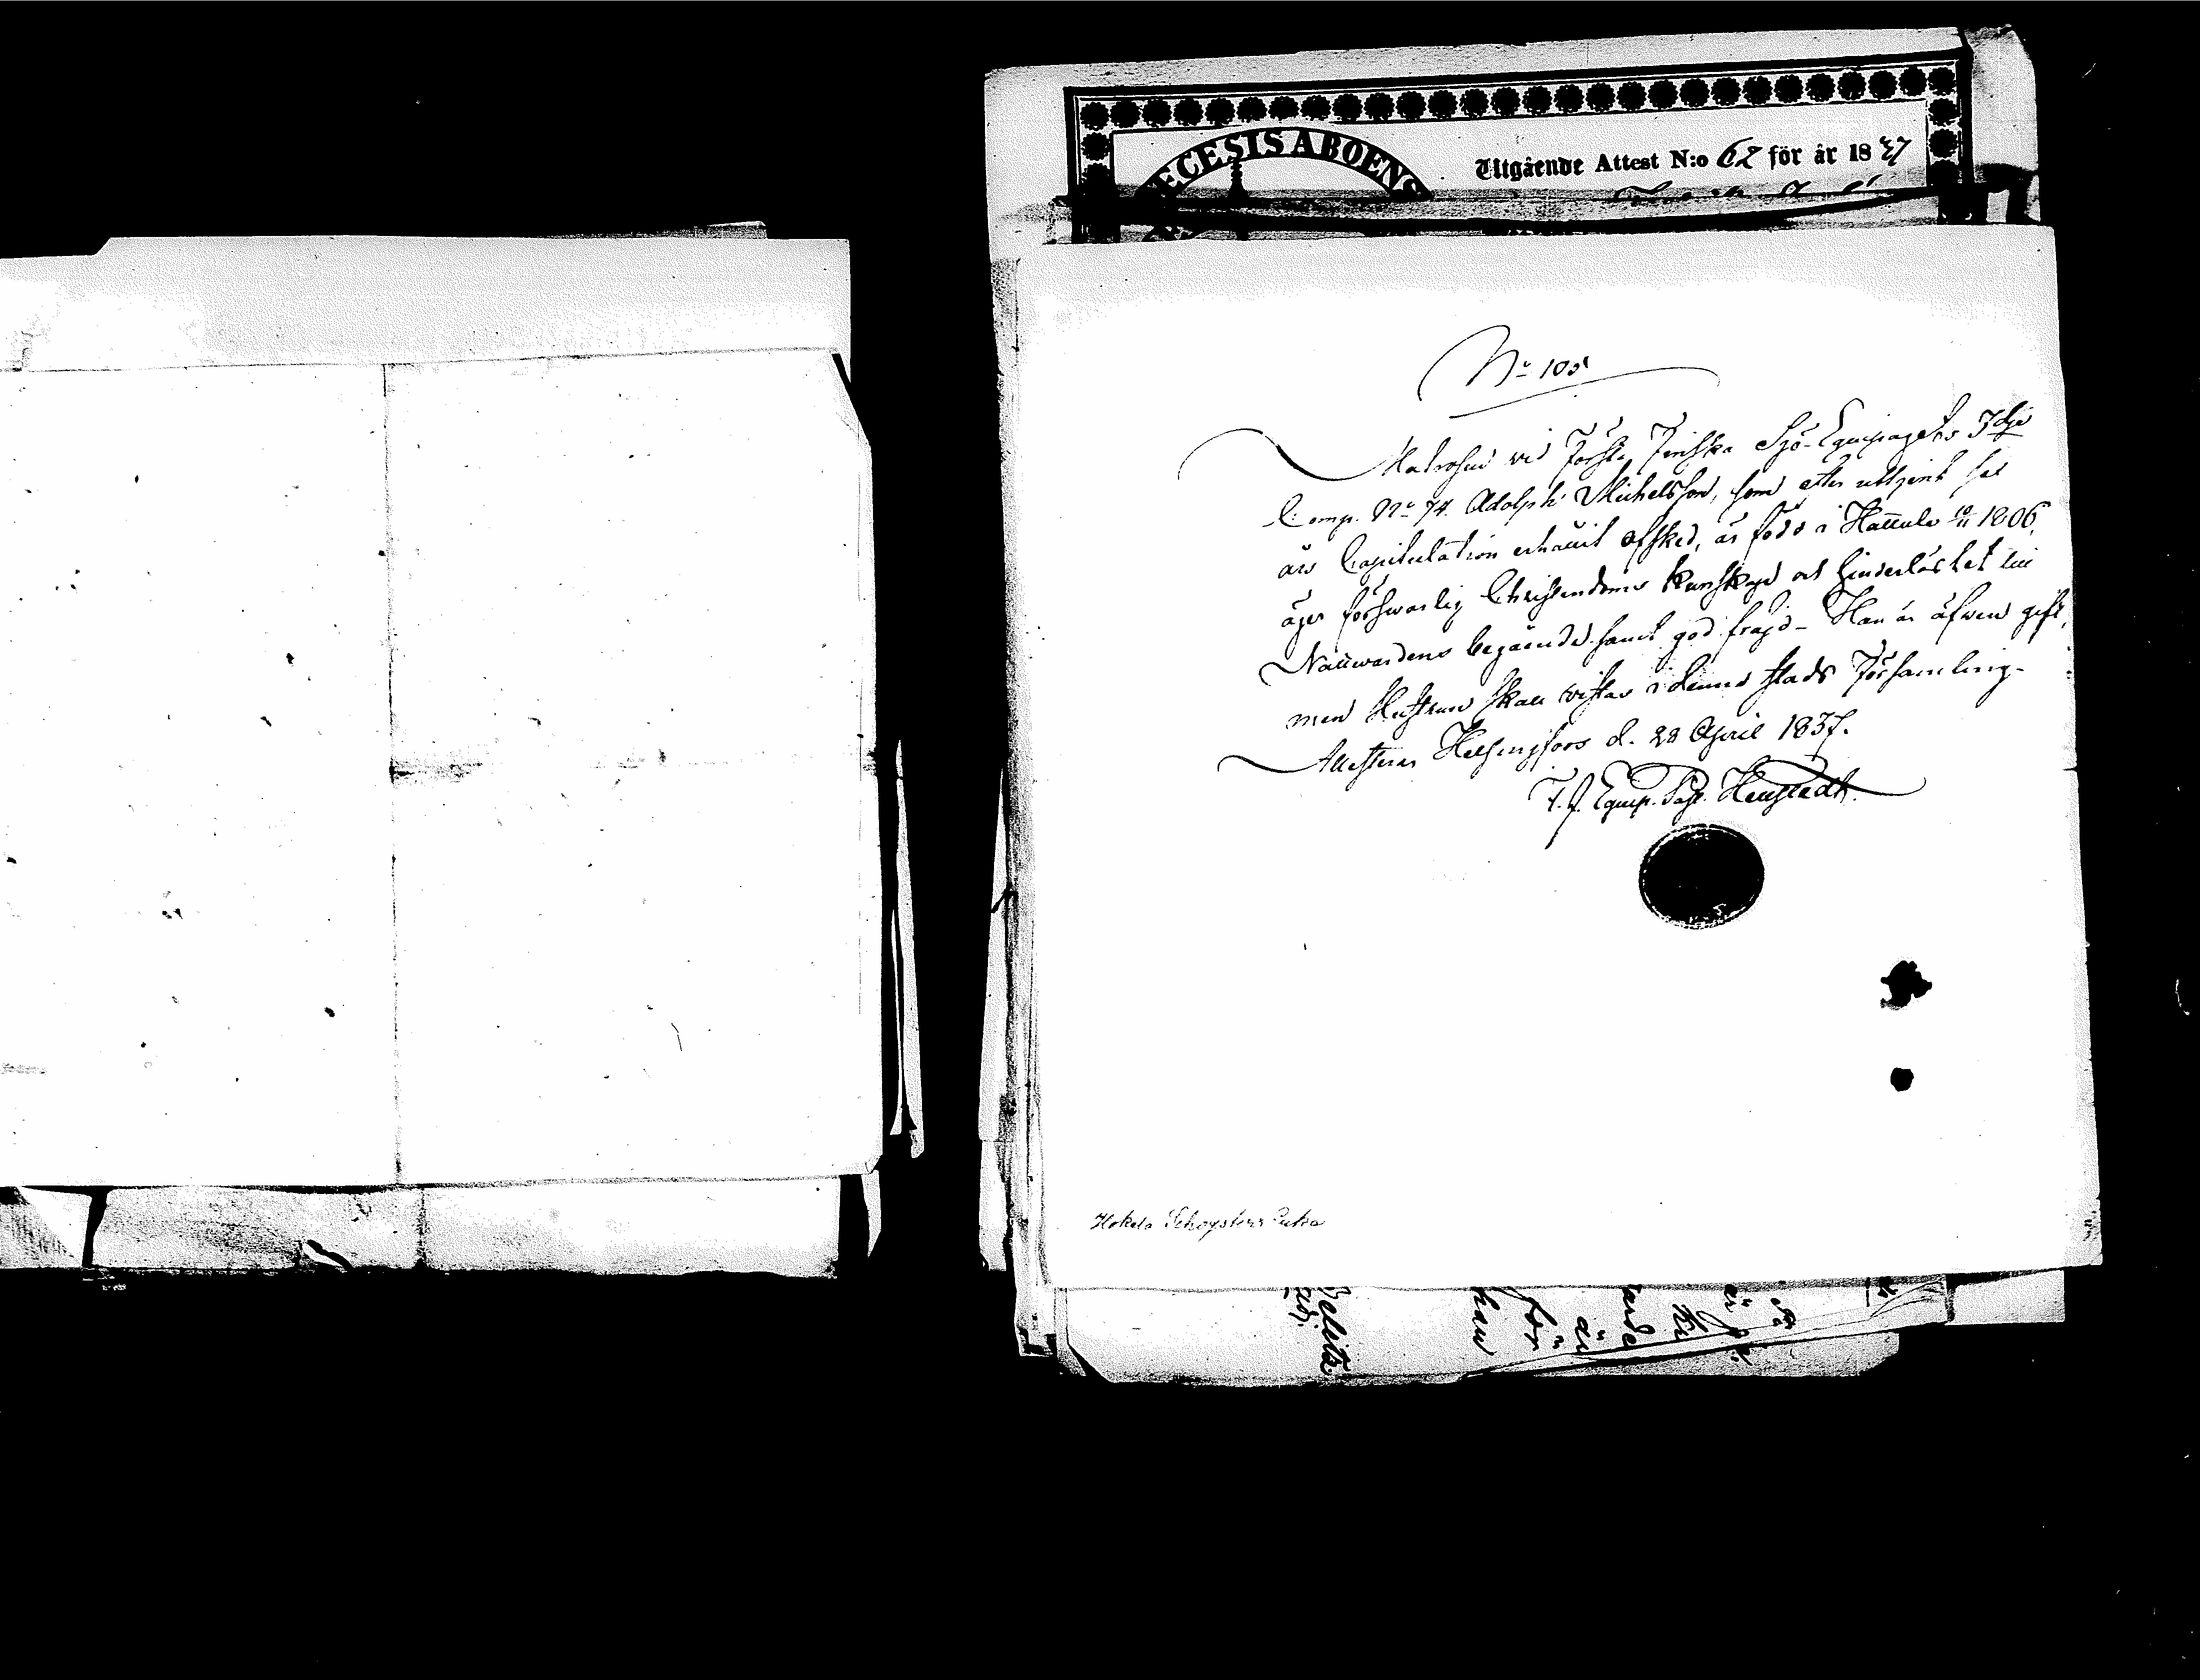 ECESIS ABOENS
Utgående Attest N:o 62 för år 1837
No 105
Matrosen vid Första Finska Sjö-Equipagets 3dje
Comp. No 74. Adolph Michelsson, som efter uttjent sex
års Capitulation erhållit afsked, är född i Hattula 10/11 1806,
äger försvarlig Christendoms kunskap och hinderlöshet till
Nattvardens begående samt god frejd - Han är äfven gift,
men Hustrun skall vistas i denna stads Församling -
Attesteras Helsingfors d. 28 April 1837.
Equip. Past.
Hokela
Petra
han
för
är